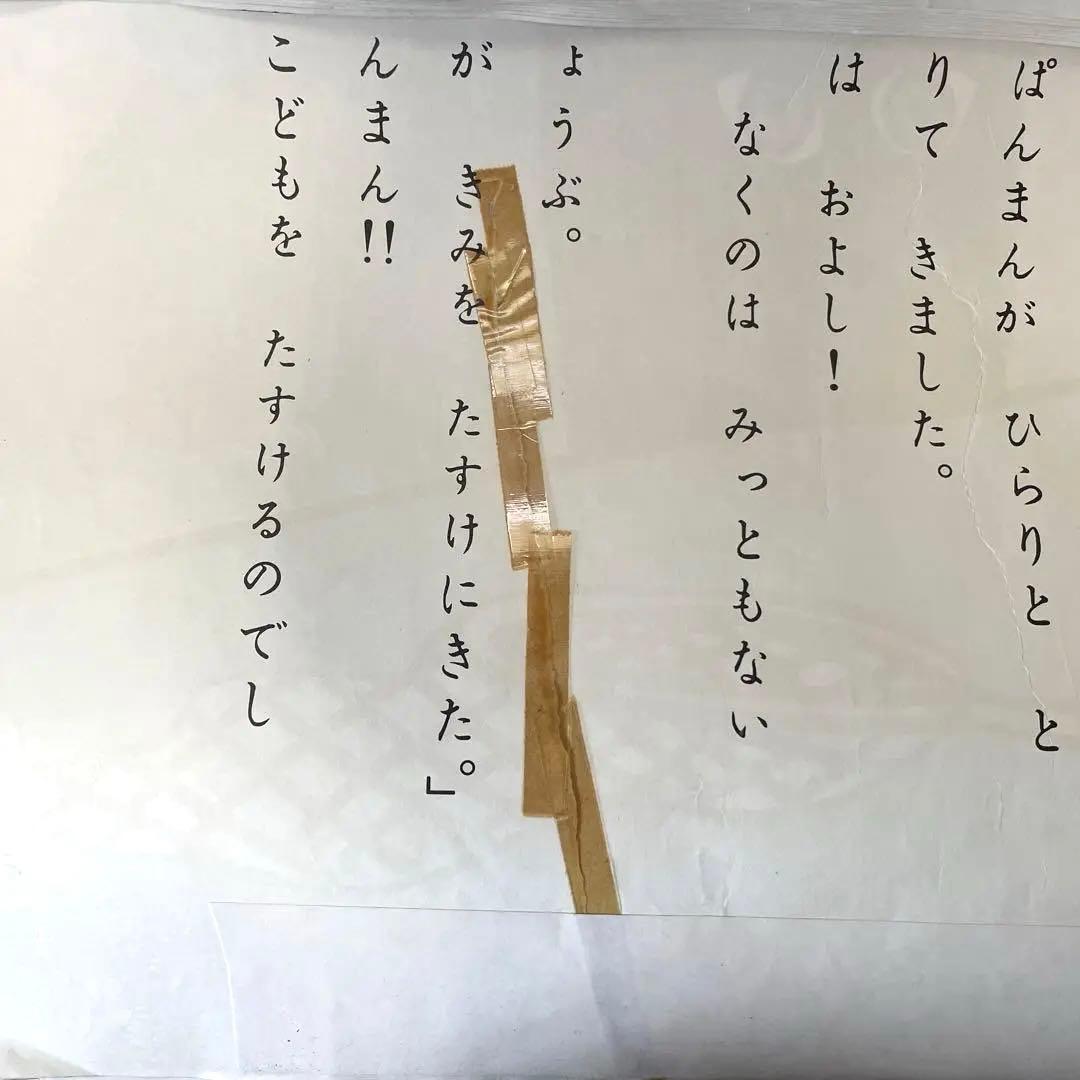 ぱんまんが ひらりと と
りて きました。
は およし!
なくのは みっともない
ょうぶ。
が きみを たすけにきた。」
んまん!!
こどもを たすけるのでし